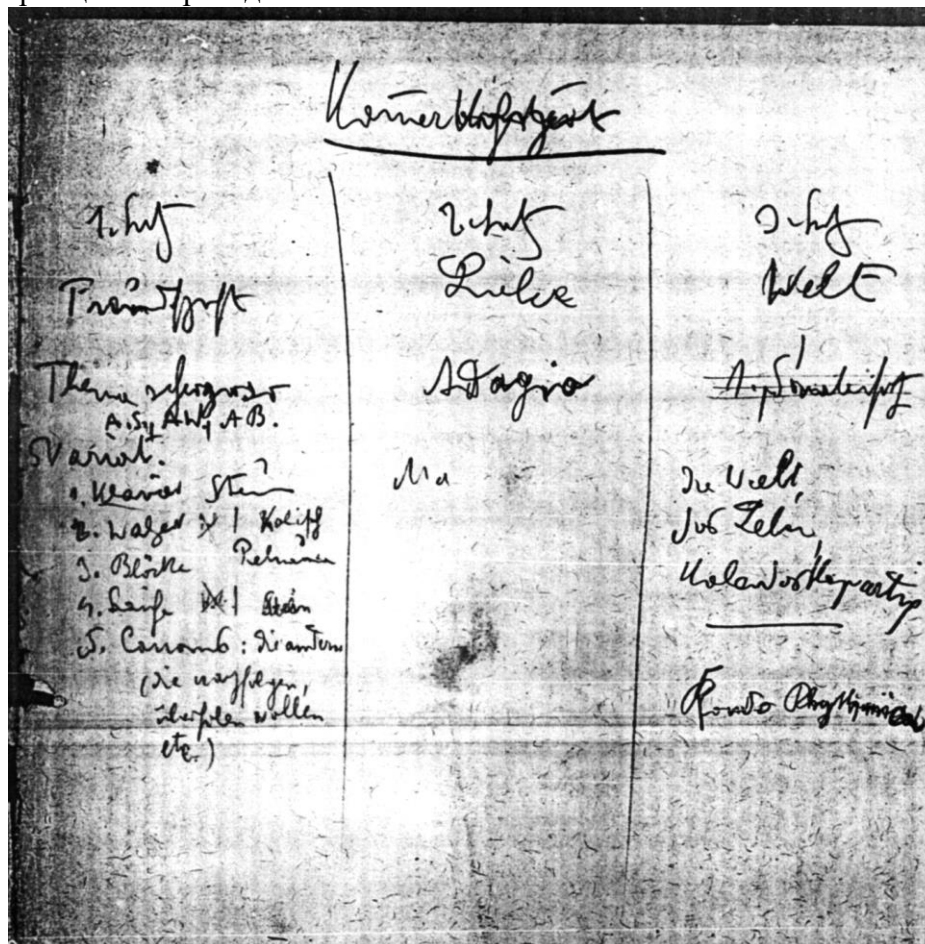 Kam̄erkonzert
1. Satz
Freundschaft
Thema scherzoso
A.S, A.W, A.B.
Variat.
1. Klavier Stein
2. Walzer | Kolisch
3. Blöcke Polnauer
4. Läufe
5. Canons: die andern
(die nachfolgen,
überholen wollen
etc.)
2. Satz
Liebe
Adagio
Ma
3. Satz
Welt
Die Welt,
Das Leben,
Kaleidoskopartig
Rondo